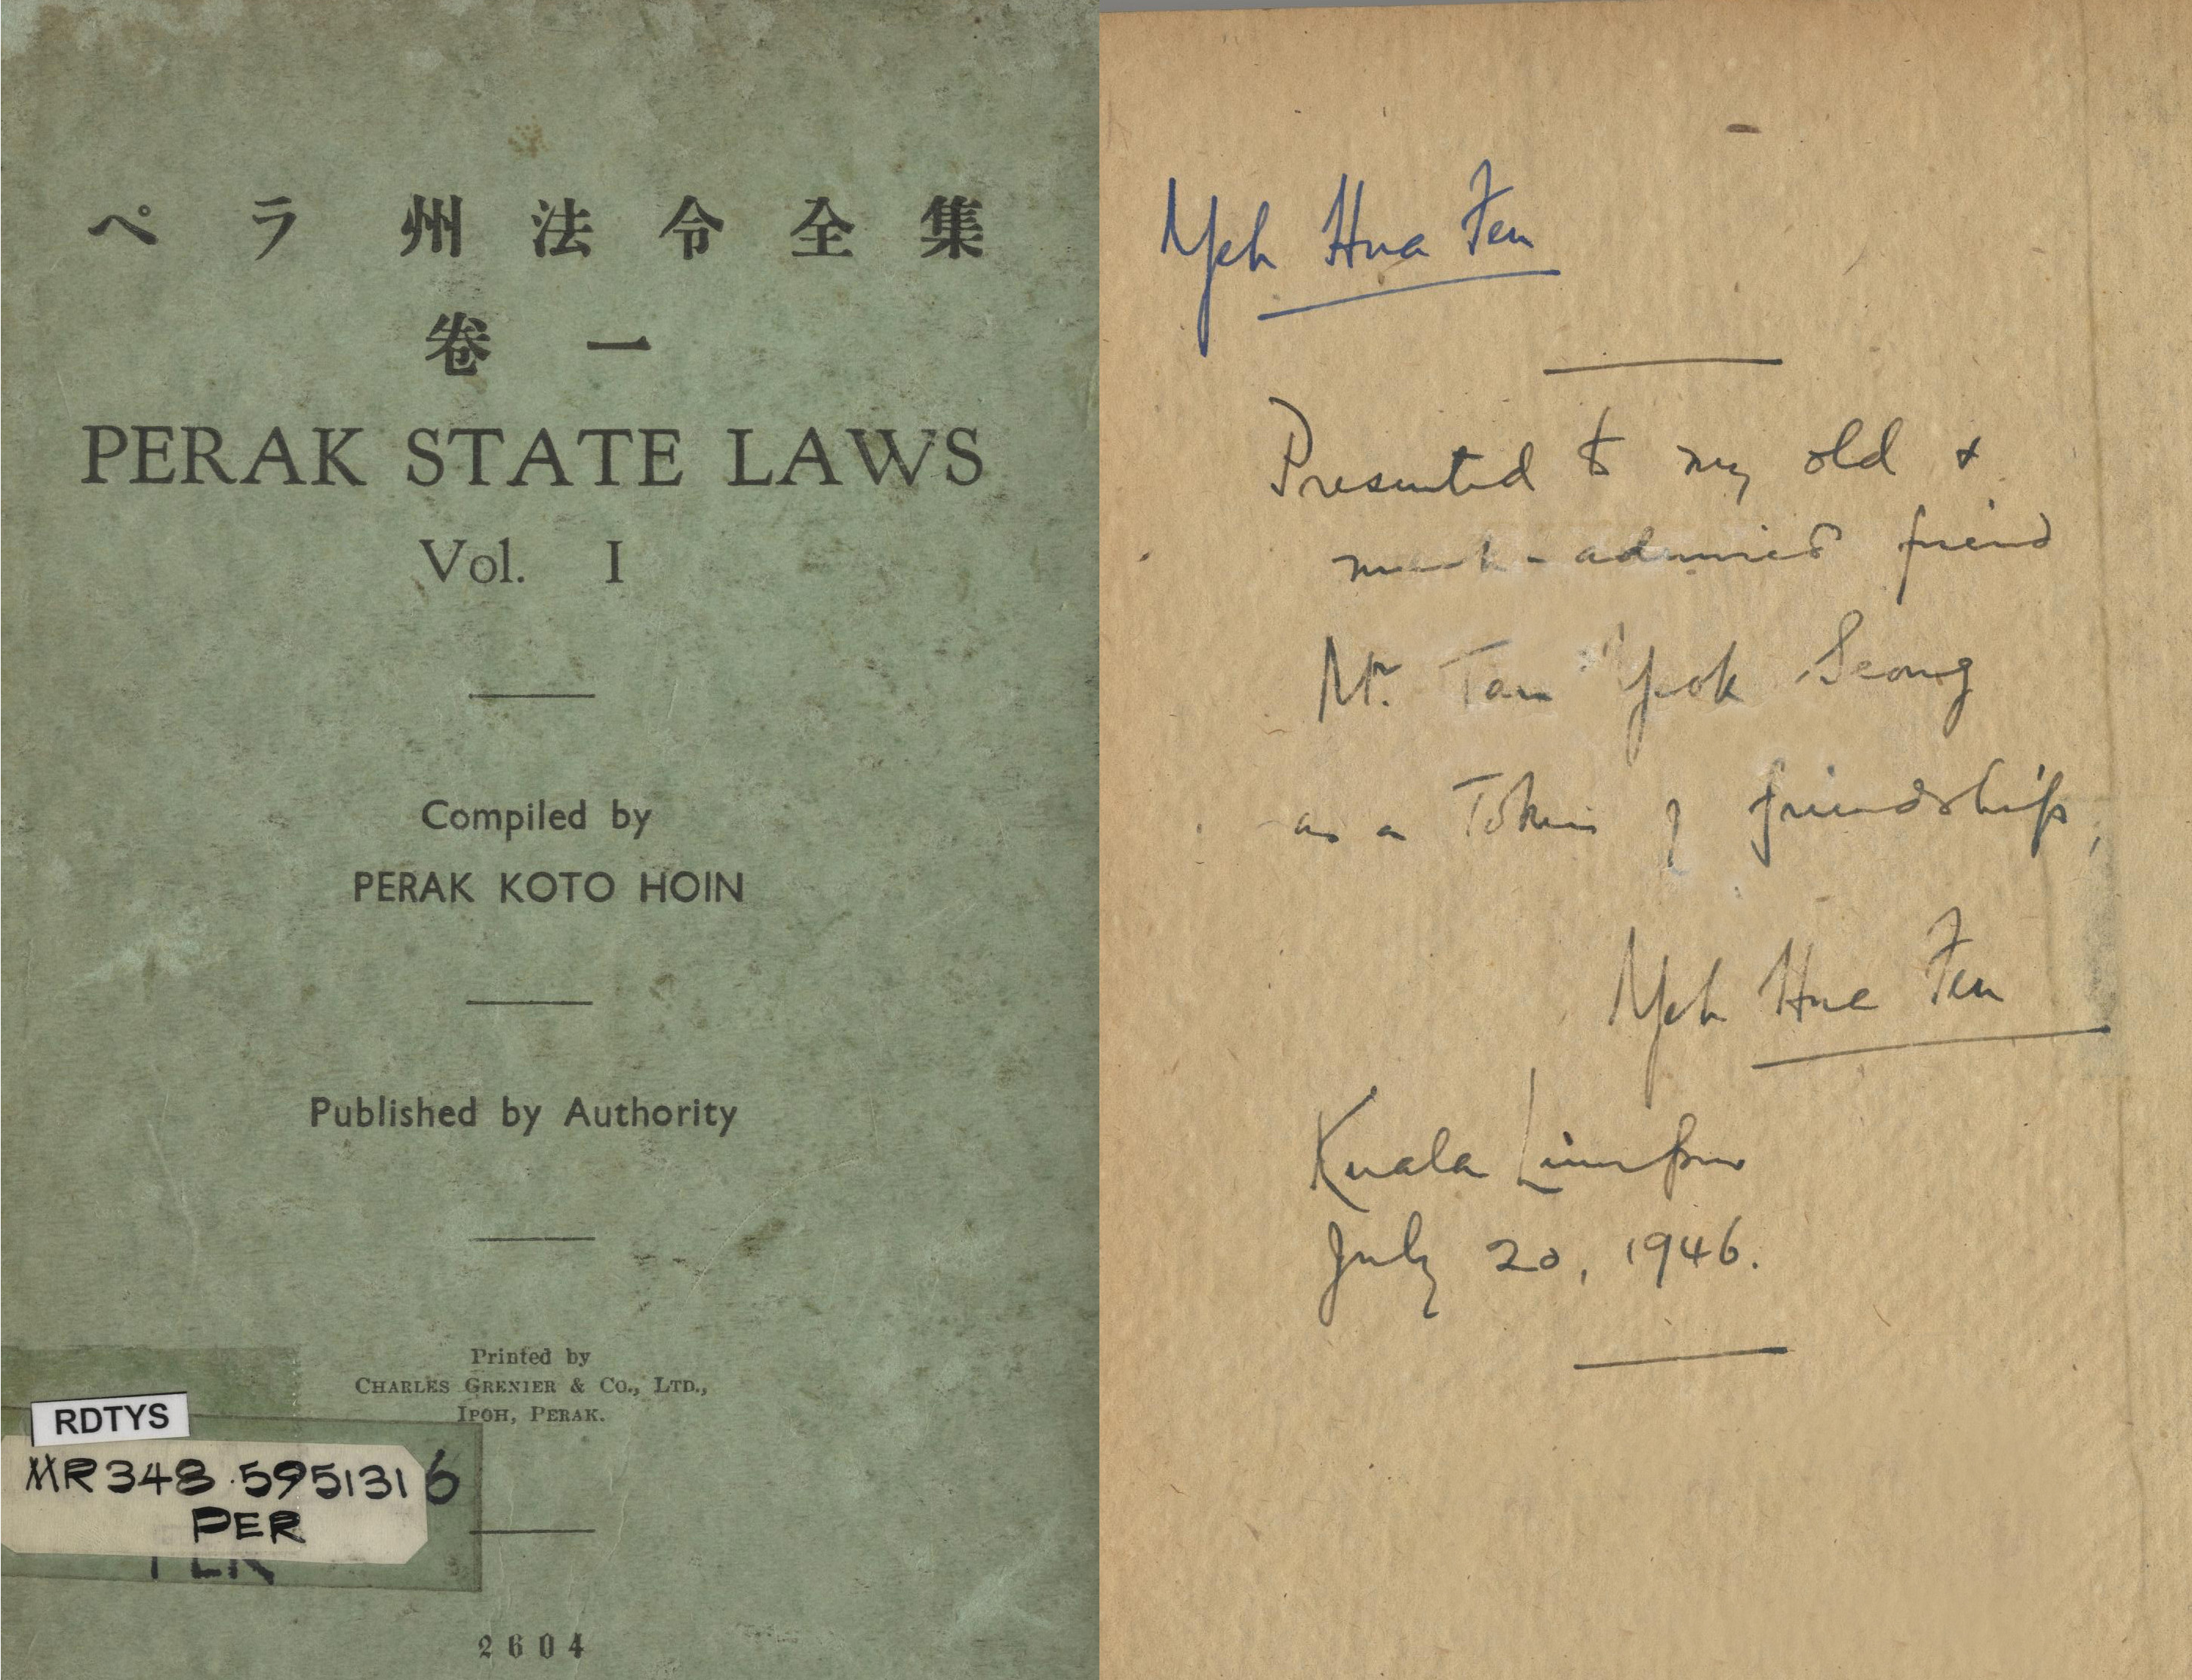 ペラ州法令全集
卷一
PERAK STATE LAWS
Vol. I
Compiled by
PERAK KOTO HOIN
Published by Authority
Printed by
CHARLES GRENIER & CO., LTD.,
IPOH, PERAK.
RDTYS
MR 348.5951316
PER
2604
Yeh Hua Fen
Presented to my old &
much-admired friend
Mr. Tan Yeok Seong
as a Token of friendship,
Yeh Hua Fen
Kuala Lumpur
July 20, 1946.